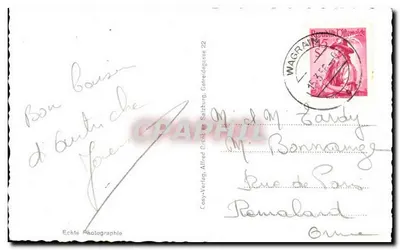 Bon baiser
d'Autriche
Echte Photographie
Cosy-Verlag, Alfred Salzburg, Getreidegasse 22
CPAPHIL.com
WAGRAIN
M. et M.
M.
Rue de Paris
Remalard
Orne